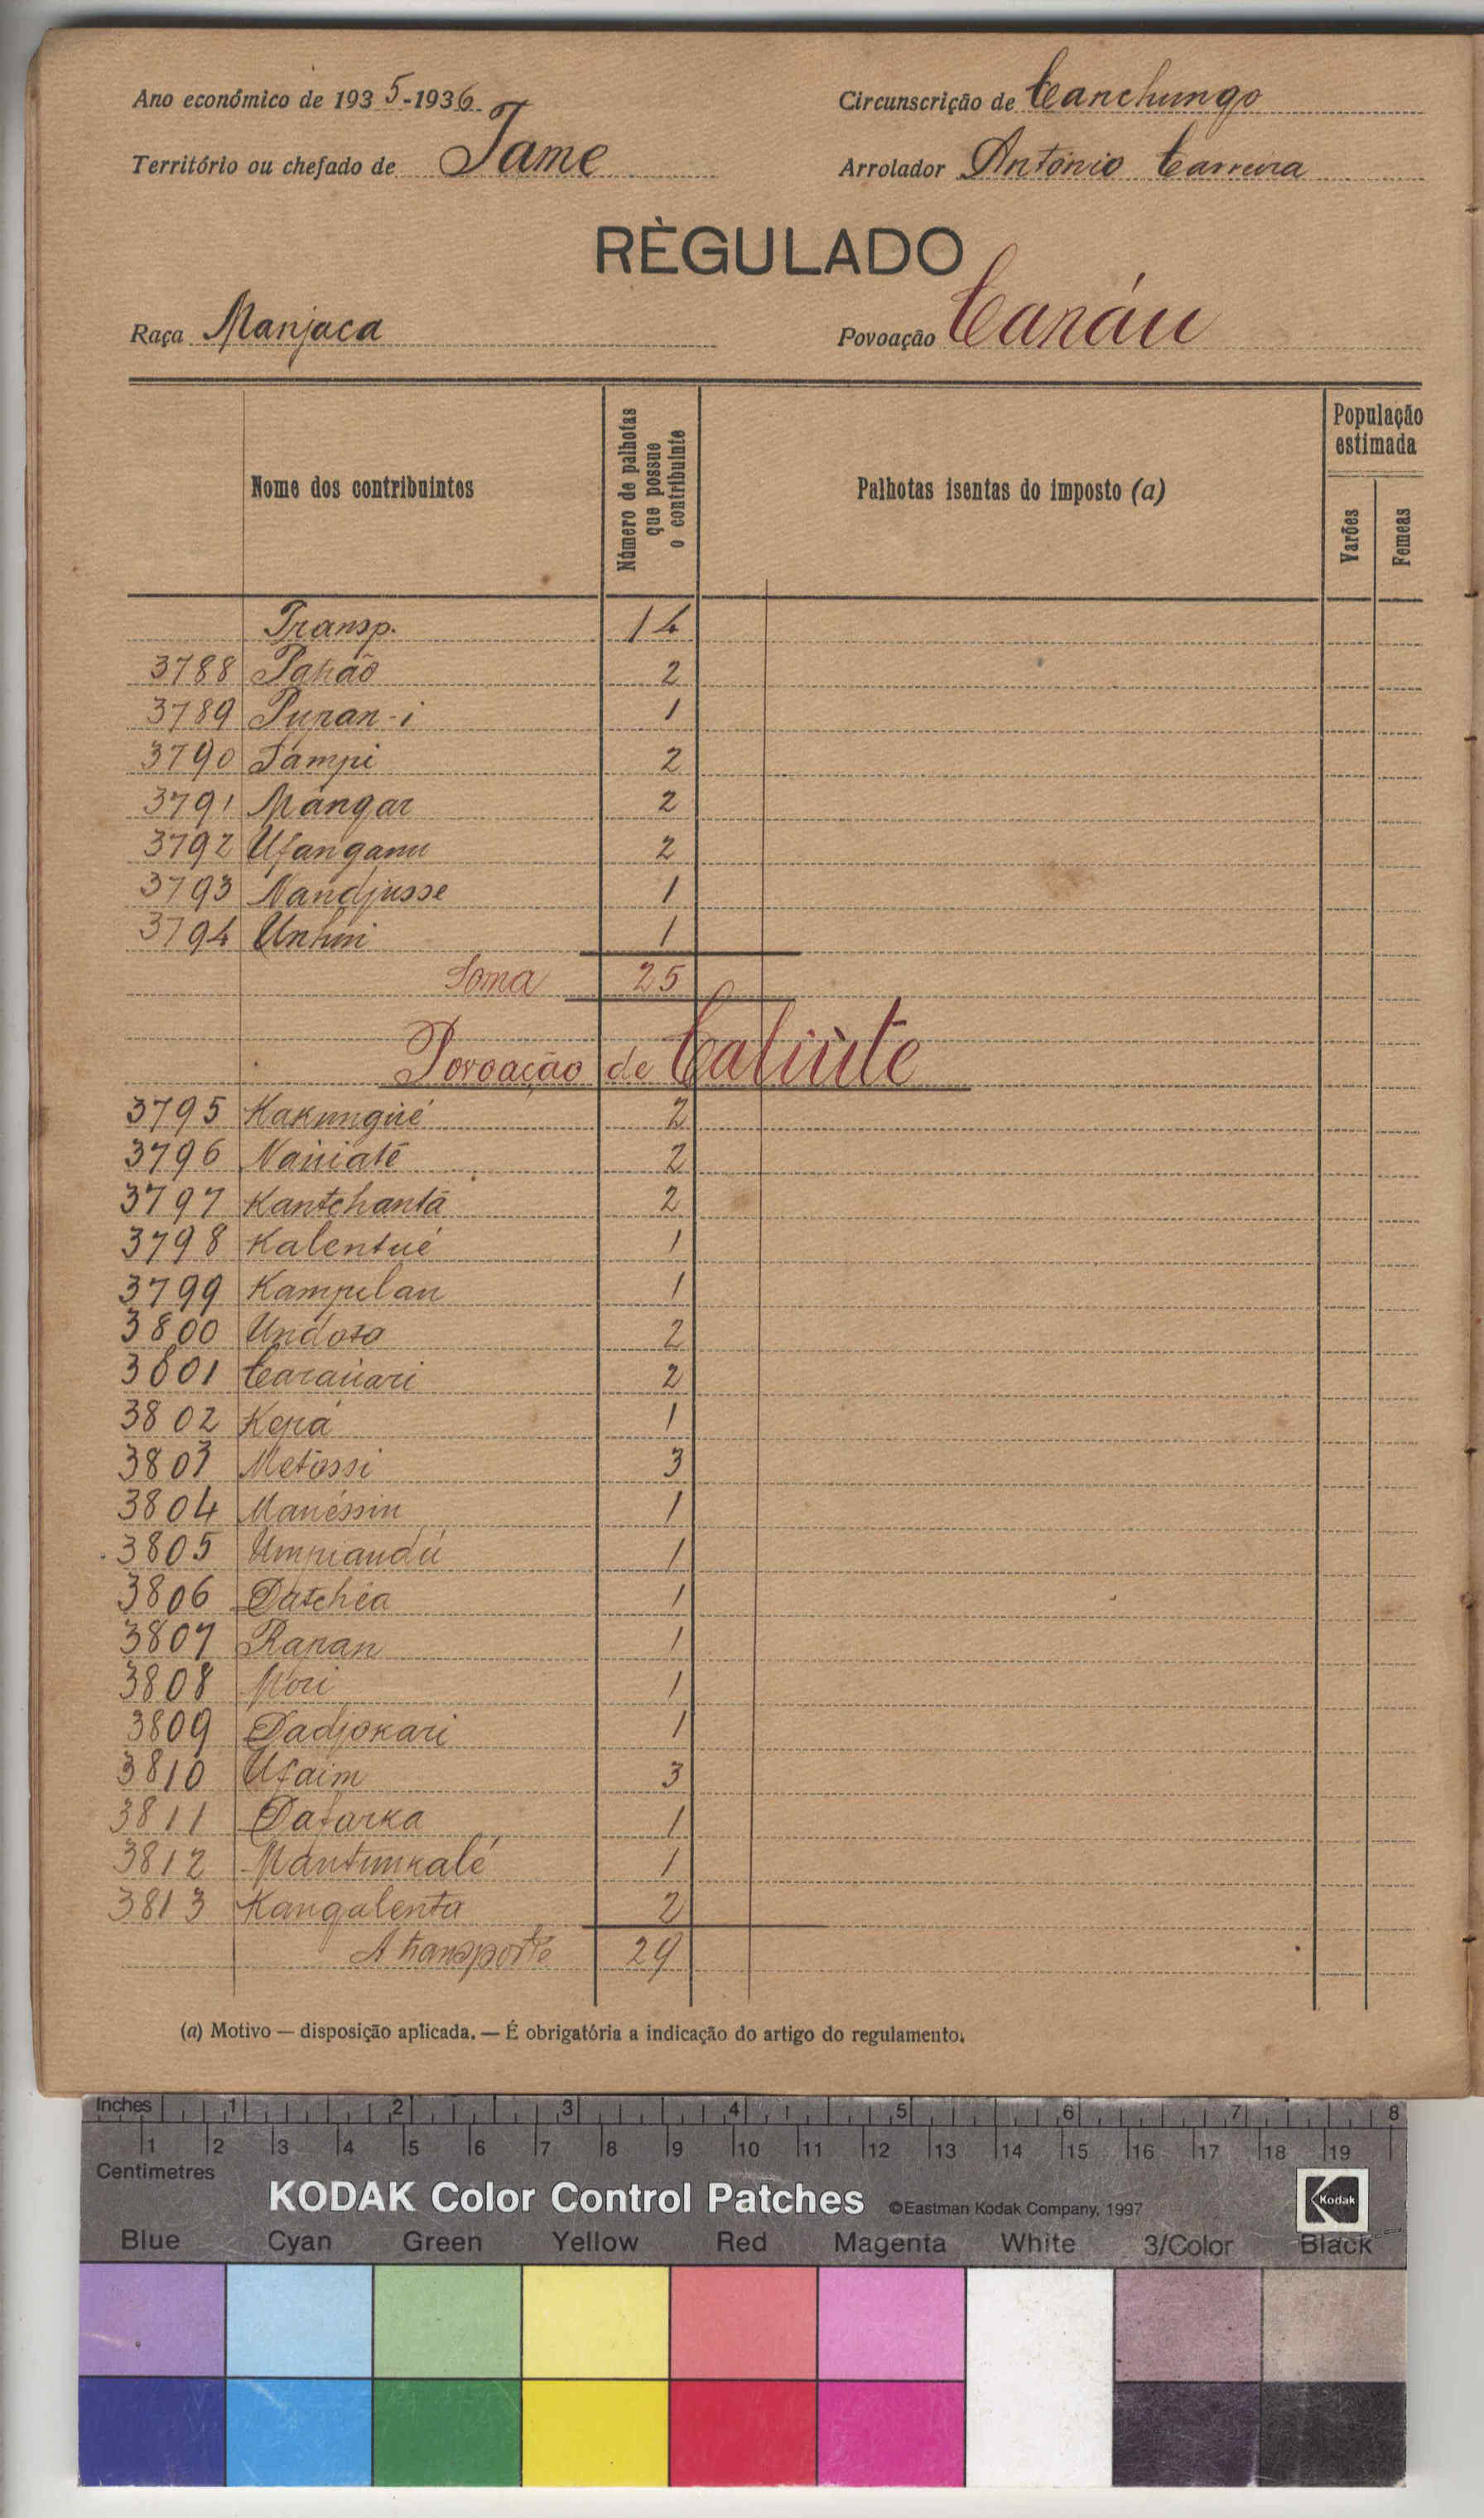 Ano económico de 1935-1936 Circunscrição de Canchungo
Território ou chefado de Jame Arrolador António Carreira
RÈGULADO
Raça Manjaca Povoação
Nome dos contribuintes Número de palhotas que possue o contribuinte Palhotas isentas do imposto (a) População estimada Varões Femeas
Transp. 14
3788 2
3789 1
3790 Sampi 2
3791 Mángar 2
3792 Ufanganu 2
3793 Nandjusse 1
3794 1
Soma 25
Povoação de
3795 Kakungúé 2
3796 2
3797 Kantchantá 2
3798 Kalentué 1
3799 Kampelan 1
3800 2
3801 2
3802 Kepá 1
3803 Metóssi 3
3804 Manéssin 1
3805 Umpiandú 1
3806 Datchéa 1
3807 1
3808 Móri 1
3809 Dadjokari 1
3810 Ufaim 3
3811 Dafarka 1
3812 Mantunkalé 1
3813 Kangalenta 2
A transporte 29
(a) Motivo — disposição aplicada. — É obrigatória a indicação do artigo do regulamento.
Inches 1 2 3 4 5 6 7 8
1 2 3 4 5 6 7 8 9 10 11 12 13 14 15 16 17 18 19
Centimetres
KODAK Color Control Patches ©Eastman Kodak Company, 1997 Kodak
Blue Cyan Green Yellow Red Magenta White 3/Color Black